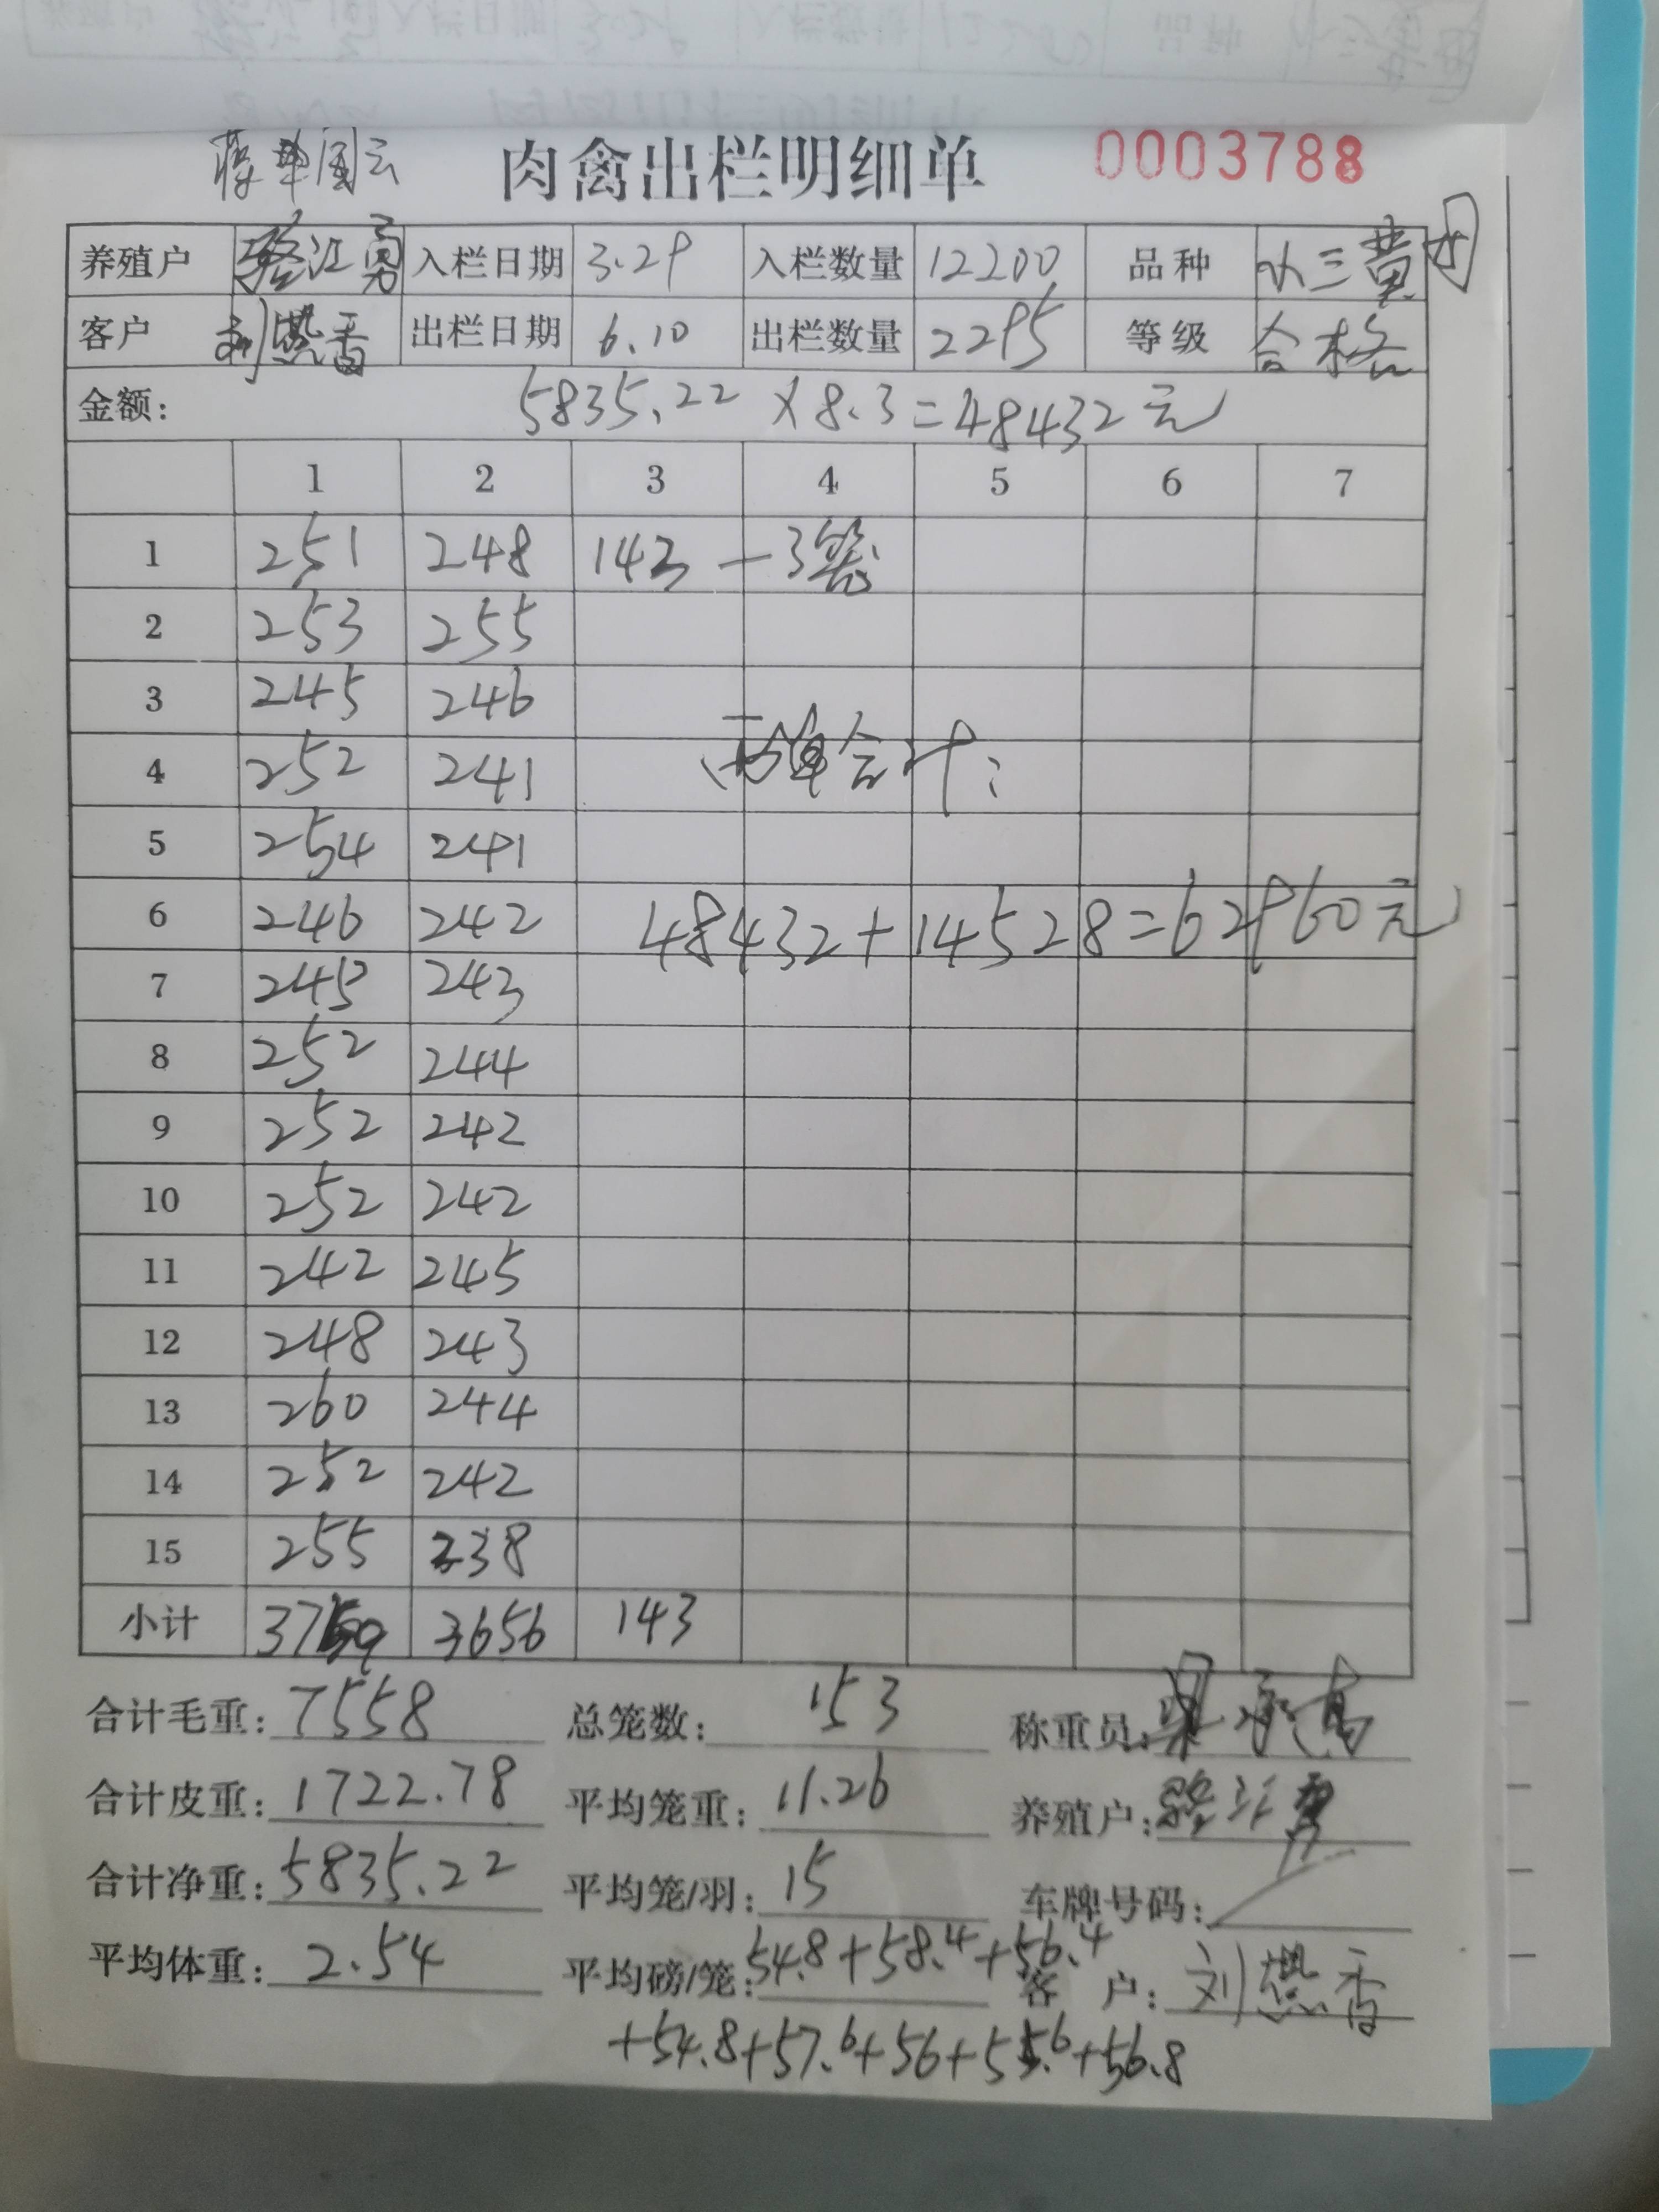 肉禽出栏明细单 0003788
养殖户 骆江勇 入栏日期 3.29 入栏数量 12200 品种 水三黄母
客户 刘燕香 出栏日期 6.10 出栏数量 2295 等级 合格
金额: 5835.22×8.3=48432元
1 2 3 4 5 6 7
1 251 248 143 —3笼
2 253 255
3 245 246
4 252 241
两单合计:
5 254 241
6 246 242 48432+14528=62960元
7 245 243
8 252 244
9 252 242
10 252 242
11 242 245
12 248 243
13 260 244
14 252 242
15 255 238
小计 3759 3656 143
合计毛重: 7558 总笼数: 153 称重员:
合计皮重: 1722.78 平均笼重: 11.26 养殖户: 骆江勇
合计净重: 5835.22 平均笼/羽: 15 车牌号码:
平均体重: 2.54 平均磅/笼: 54.8+58.4+56.4 客 户: 刘燕香
+54.8+57.6+56+55.6+56.8